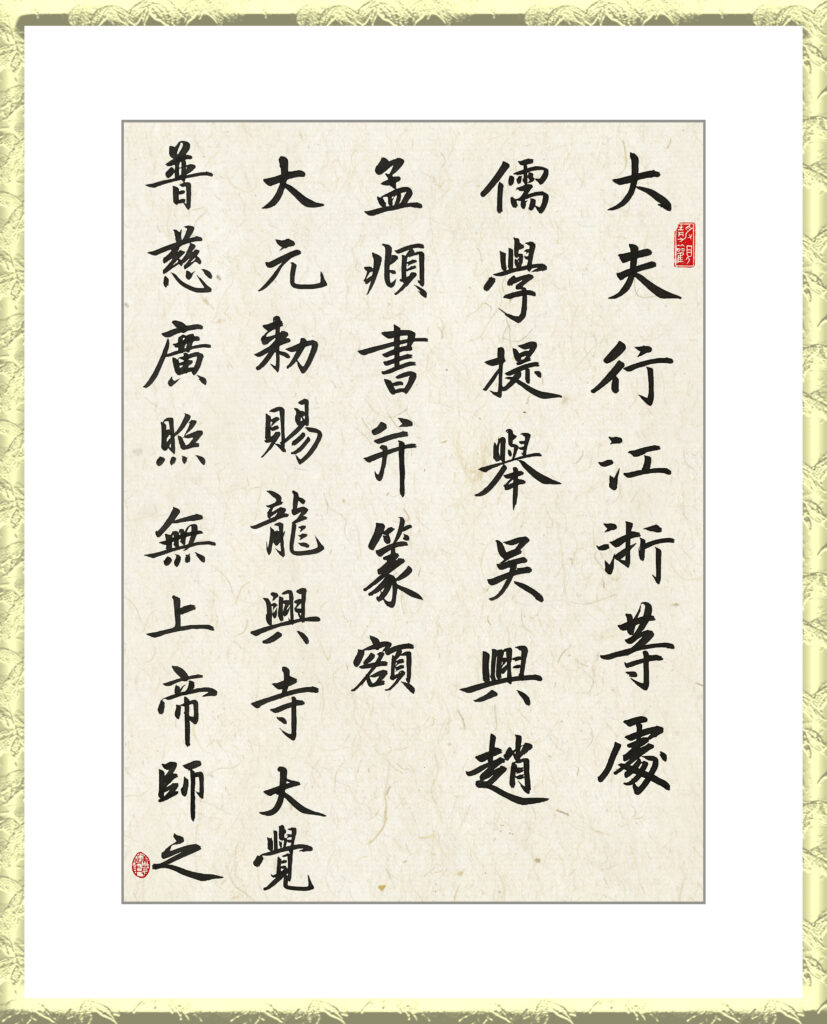 大夫行江浙等處
儒學提舉吴興趙
孟頫書并篆額
大元勑賜龍興寺大覺
普慈廣照無上帝師之